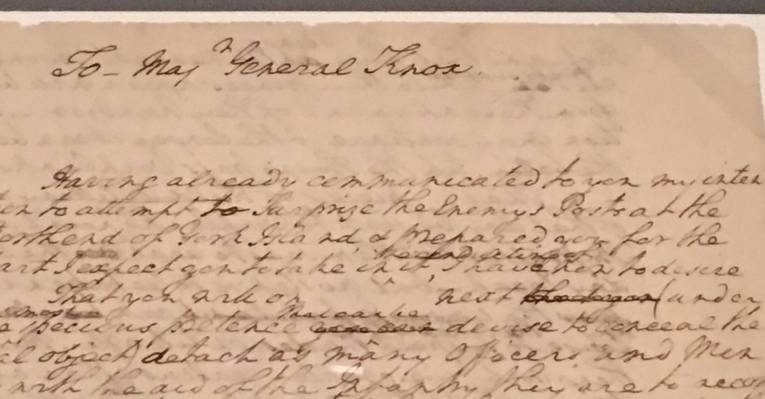 To - Majr General Knox
Having already communicated to you my inten
to attempt to Surprize the Enemys Posts at the
end of York Island, & prepared you for the
I expect you to take in it, I have to desire
That you will on next (under
most
specious pretence you can devise to conceal the
object) detach as many Officers and Men
with the aid of the Infantry they are to